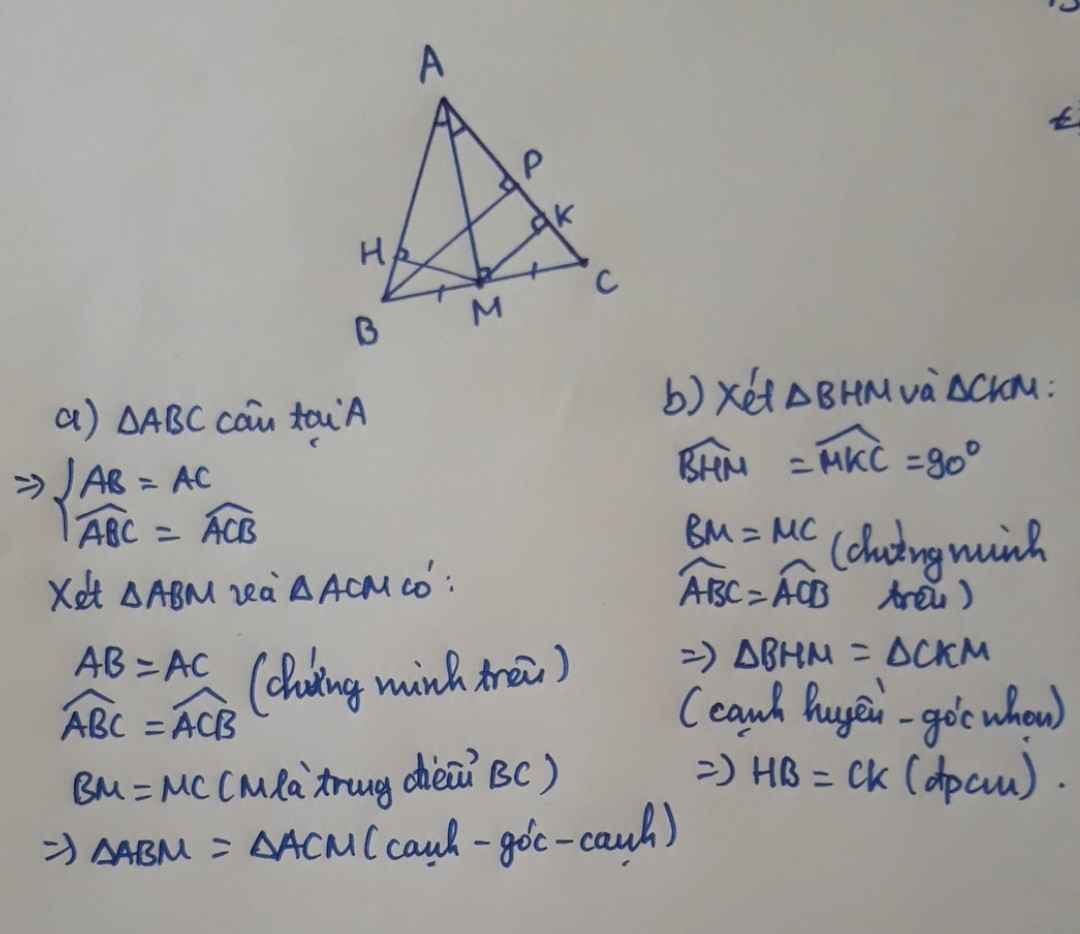 A
P
K
H
C
M
B
a) ΔABC cân tại A
=> { AB = AC
\widehat{ABC} = \widehat{ACB}
Xét ΔABM và ΔACM có:
AB = AC (chứng minh trên)
\widehat{ABC} = \widehat{ACB}
BM = MC (M là trung điểm BC)
=> ΔABM = ΔACM (cạnh - góc - cạnh)
b) Xét ΔBHM và ΔCKM:
\widehat{BHM} = \widehat{MKC} = 90°
BM = MC (chứng minh
\widehat{ABC} = \widehat{ACB} trên)
=> ΔBHM = ΔCKM
(cạnh huyền - góc nhọn)
=> HB = CK (đpcm).